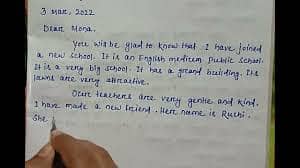 3 Mar, 2022
Dear Mona.
You will be glad to know that I have joined
a new school. It is an English medium public school.
It is a very big school. It has a grand building. Its
lawns are very attractive.
Our teachers are very gentle and kind.
I have made a new friend. Her name is Ruchi.
She